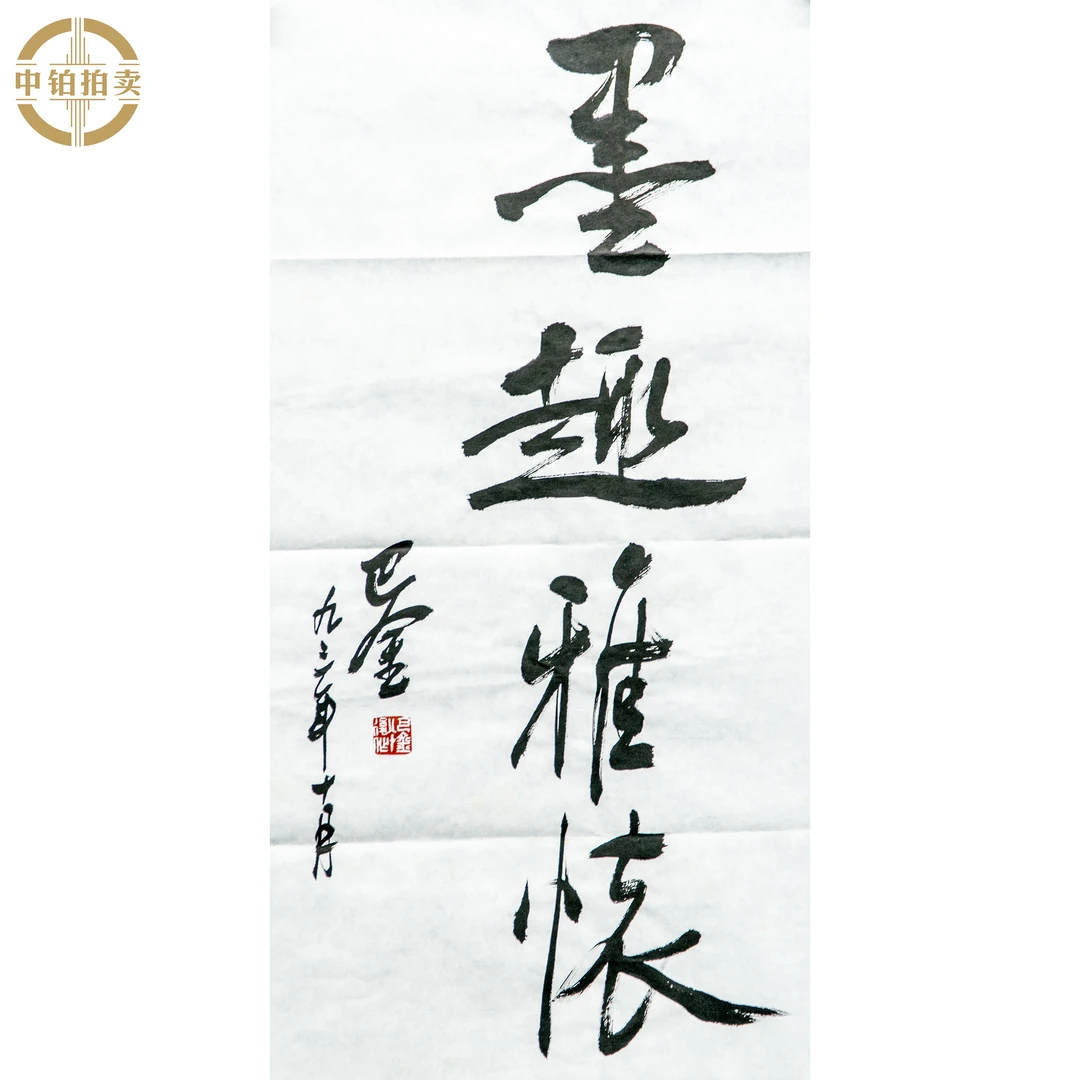 中铂拍卖
墨趣雅懷
巴金
九三年十月